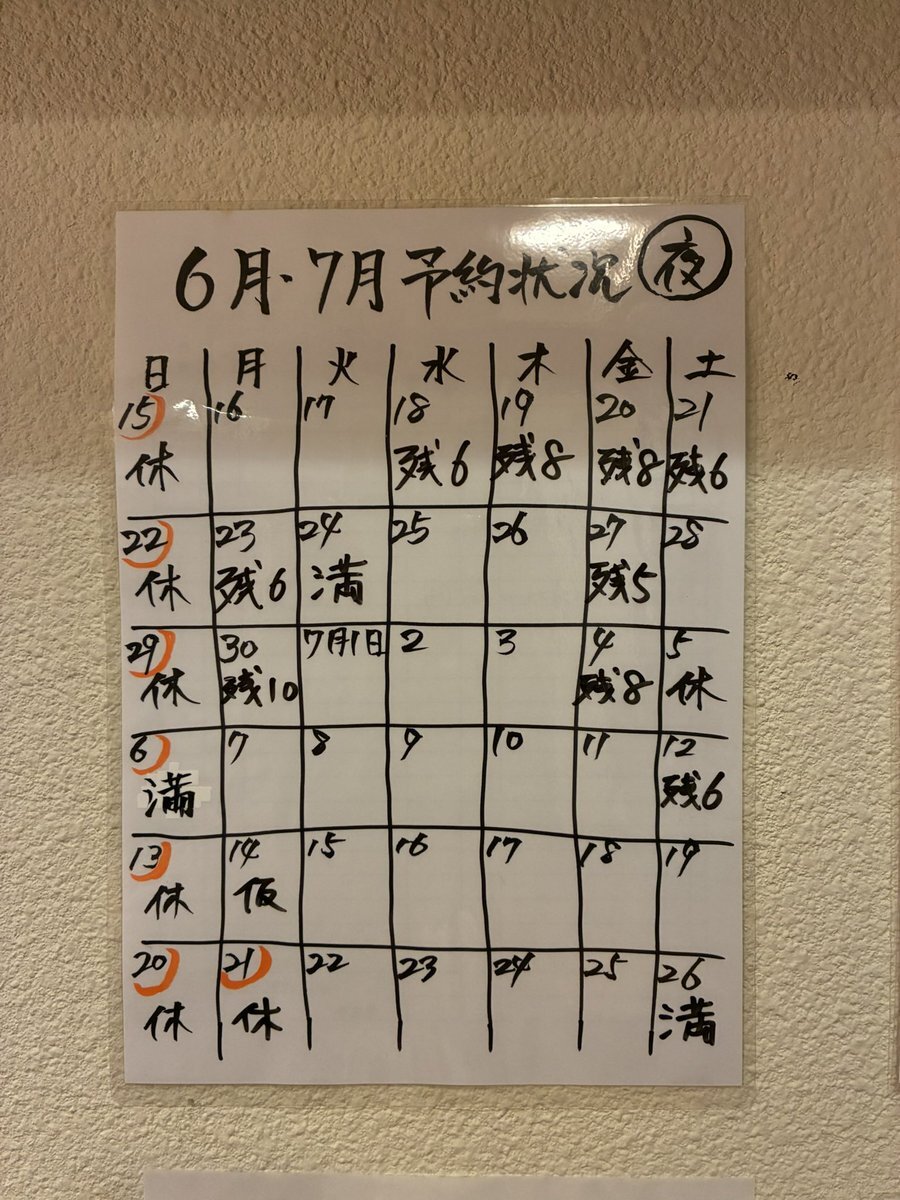 6月・7月予約状況 夜
日 月 火 水 木 金 土
15 16 17 18 19 20 21
休 残6 残8 残8 残6
22 23 24 25 26 27 28
休 残6 満 残5
29 30 7月1日 2 3 4 5
休 残10 残8 休
6 7 8 9 10 11 12
満 残6
13 14 15 16 17 18 19
休 仮
20 21 22 23 24 25 26
休 休 満